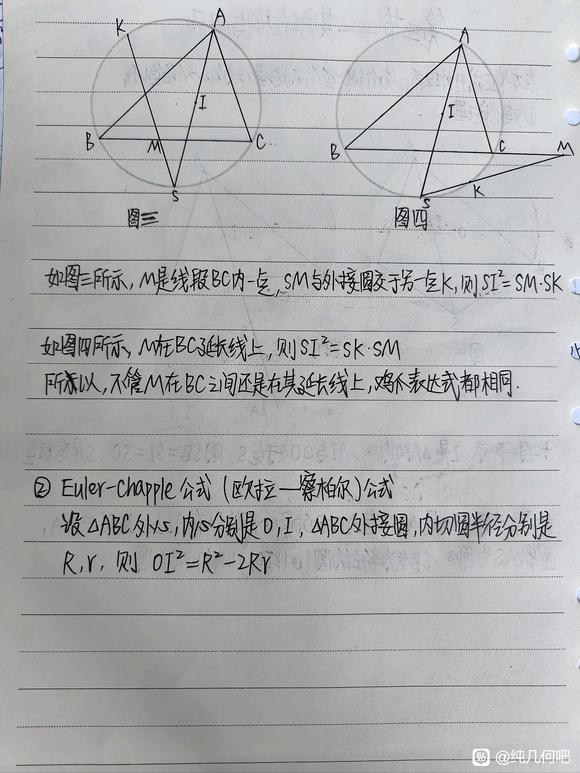 K
A
I
B
M
C
S
图三
A
I
B
C
M
K
S
图四
如图三所示，M是线段BC内一点，SM与外接圆交于另一点K，则SI²=SM·SK
如图四所示，M在BC延长线上，则SI²=SK·SM
所以，不管M在BC之间还是在其延长线上，鸡爪表达式都相同.
② Euler-Chapple公式（欧拉—察柏尔）公式
设△ABC外心，内心分别是O，I，△ABC外接圆，内切圆半径分别是
R，r，则 OI²=R²-2Rr
贴 @纯几何吧